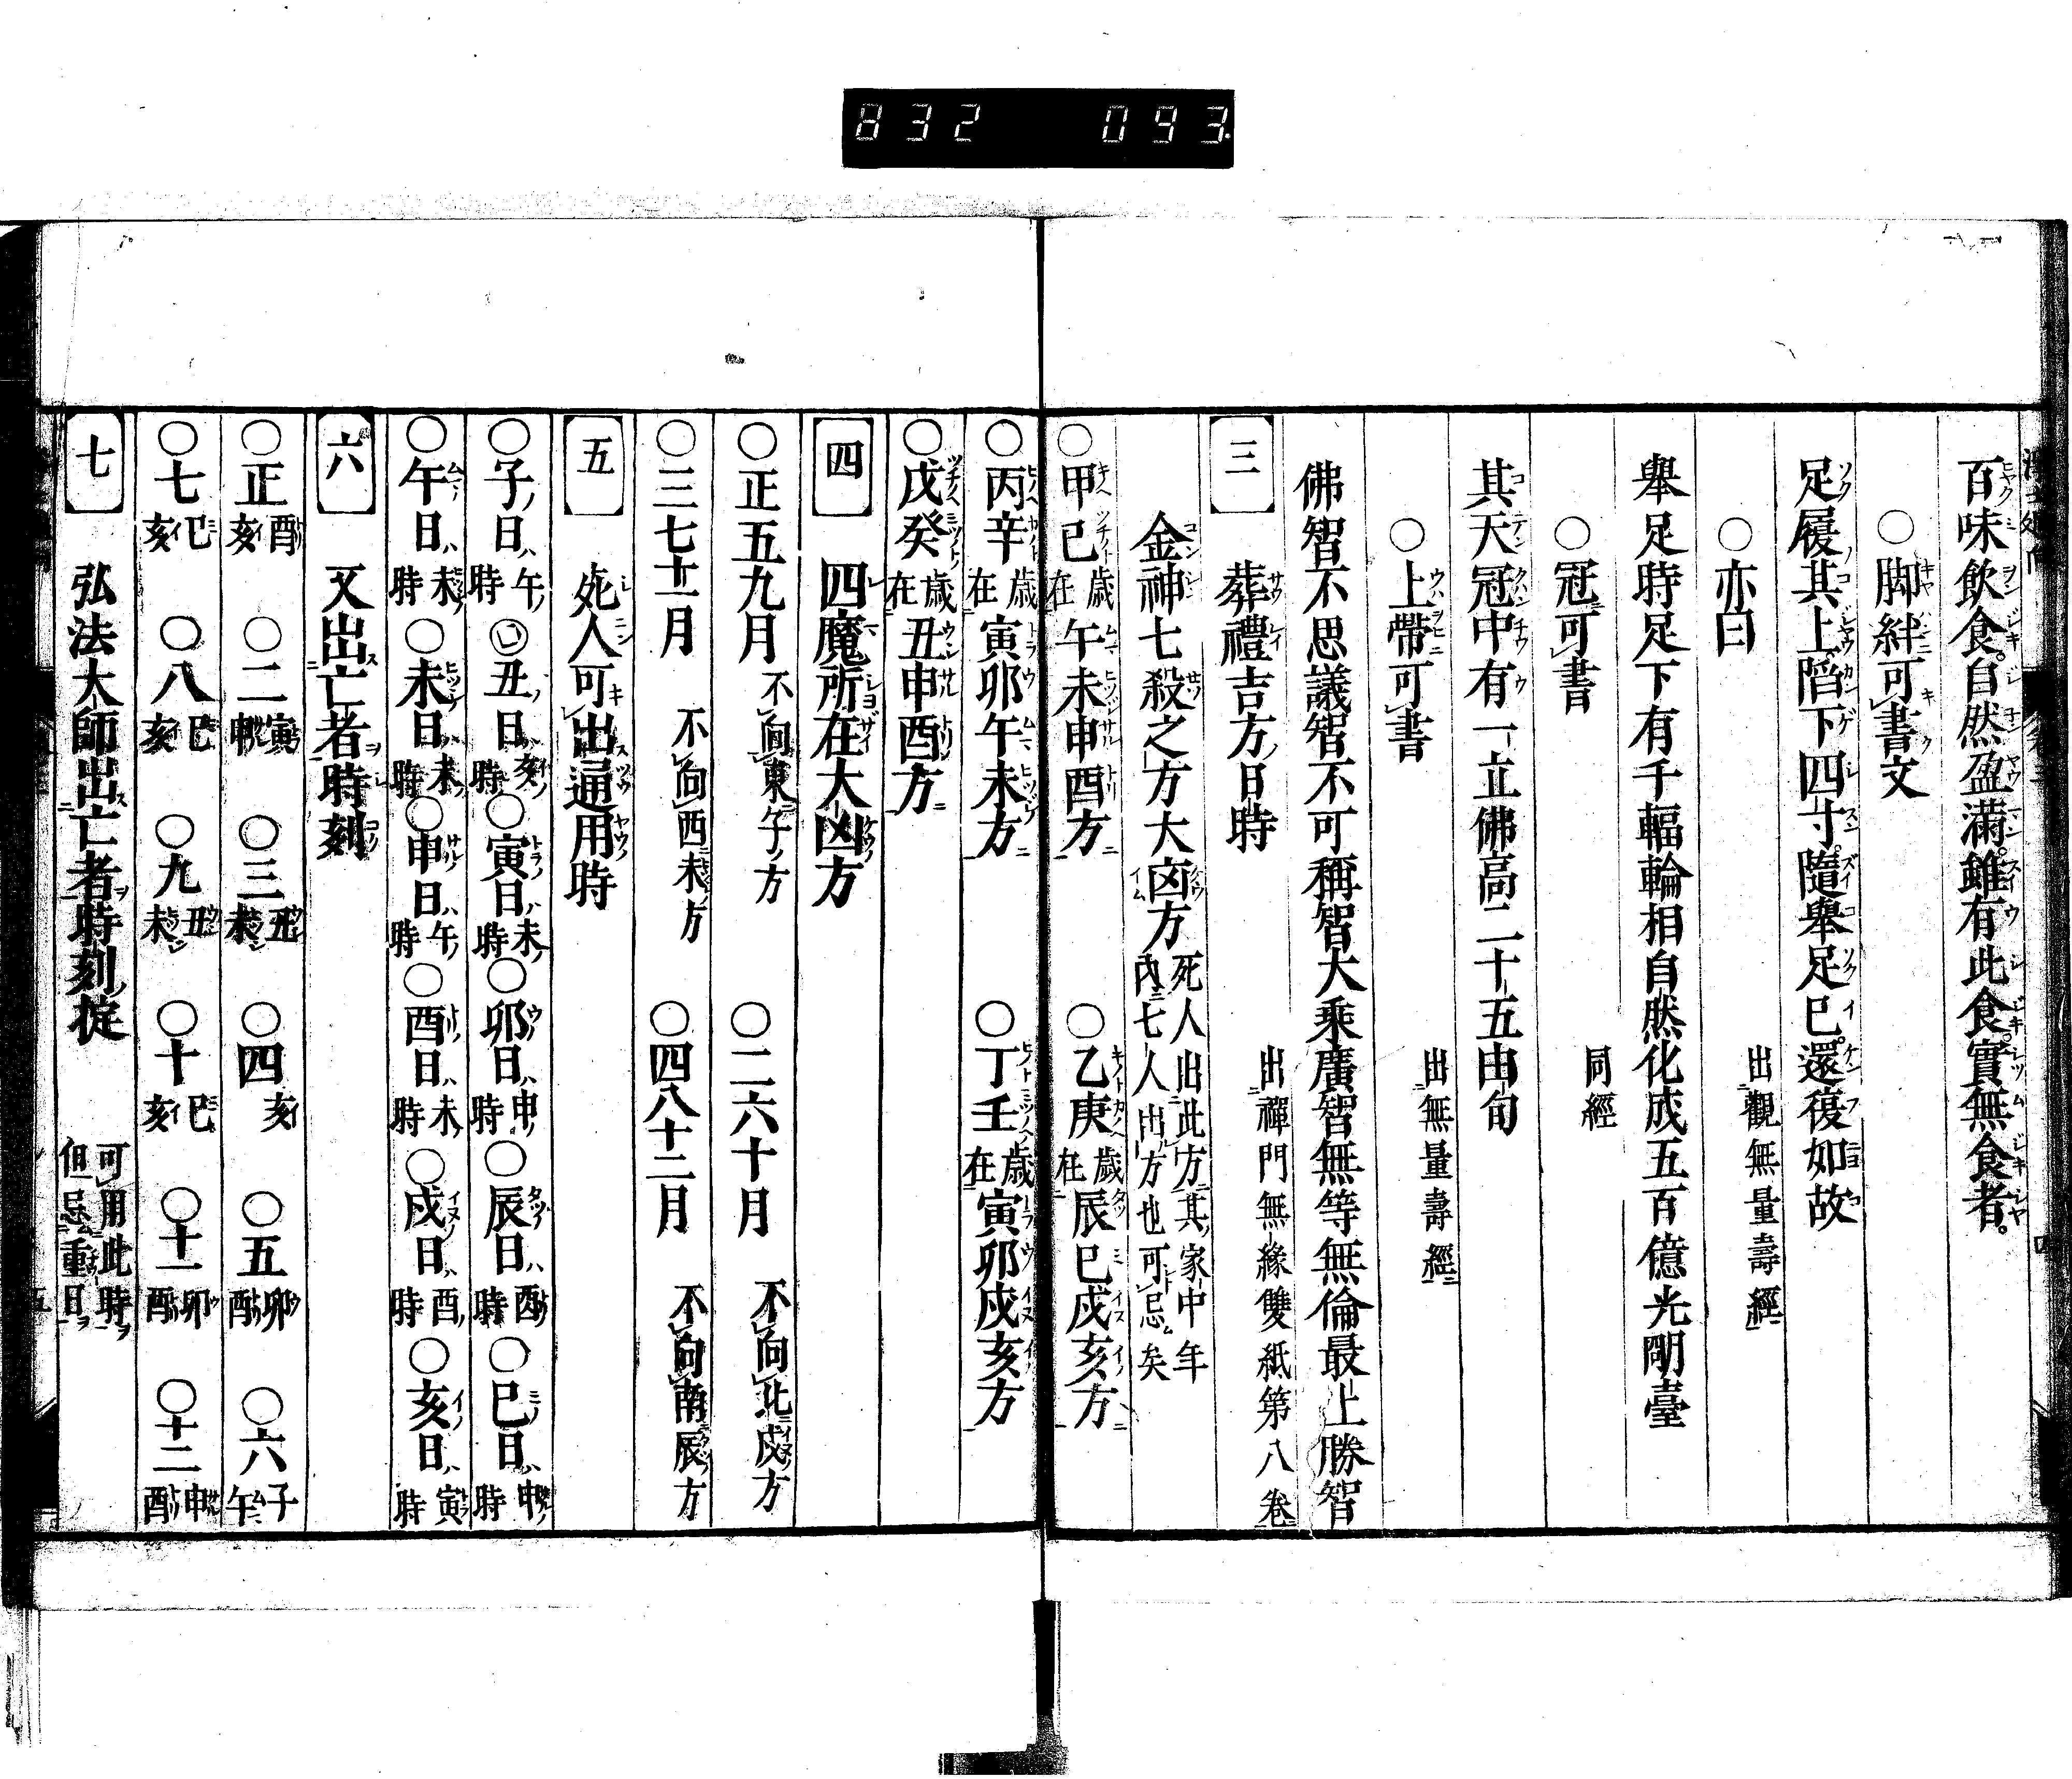 832 093
百味飲食。自然盈滿。雖有此食。實無食者。
○脚絆可書文
足履其上。陷下四寸。隨舉足已。還復如故
○亦曰 出觀無量壽經
舉足時足下有千輻輪相自然化成五百億光明臺
○冠可書 同經
其天冠中有一立佛高二十五由旬
○上帶可書 出無量壽經
佛智不思議智不可稱智大乘廣智無等無倫最上勝智
三 葬禮吉方日時 出禪門無緣雙紙第八卷
金神七殺之方大凶方 死人出此方其家中年內七人出方也可忌矣
○甲己歲在午未申酉方 ○乙庚歲在辰巳戌亥方
○丙辛歲在寅卯午未方 ○丁壬歲在寅卯戌亥方
○戊癸歲在丑申酉方
四 四魔所在大凶方
○正五九月 不向東午ノ方 ○二六十月 不向北戌ノ方
○三七十一月 不向西未ノ方 ○四八十二月 不向南辰ノ方
五 死人可出通用時
○子ノ日ハ午ノ時 ○丑ノ日ハ亥ノ時 ○寅日ハ未ノ時 ○卯日ハ申ノ時 ○辰日ハ酉ノ時 ○巳日ハ申ノ時
○午日ハ未ノ時 ○未日ハ未ノ時 ○申日ハ午ノ時 ○酉日ハ未ノ時 ○戌日ハ酉ノ時 ○亥日ハ寅ノ時
六 又出亡者時刻
○正酉亥 ○二寅申 ○三丑未 ○四亥 ○五卯酉 ○六子午
○七巳亥 ○八巳亥 ○九丑未 ○十巳亥 ○十一卯酉 ○十二申酉
七 弘法大師出亡者時刻掟 可用此時但忌重日